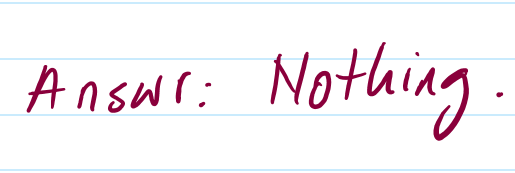 Answr: Nothing.